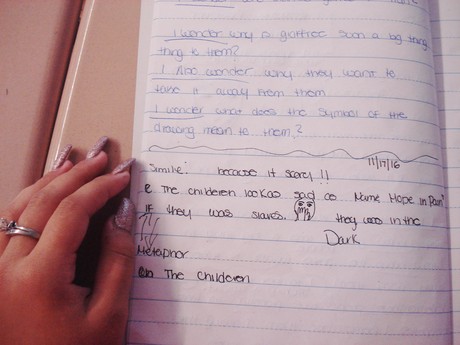 I wonder why a graffitee such a big thing
thing to them?
I Also wonder why they want to
take it away from them
I wonder what does the symbol of the
drawing mean to them?
11/17/16
Simile: because it scary!!
The childeren lookas sad as Name Hope in Rain"
IF they was slaves. they was in the
Dark
Metaphor
The childeren